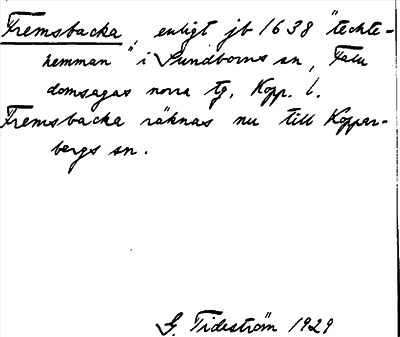 Fremsbacka, enligt jb 1638 "teckte-
hemman" i Sundborns sn, Falu
domsagas norra tg, Kopp. l.
Fremsbacka räknas nu till Koppar-
bergs sn.
G. Tideström 1929